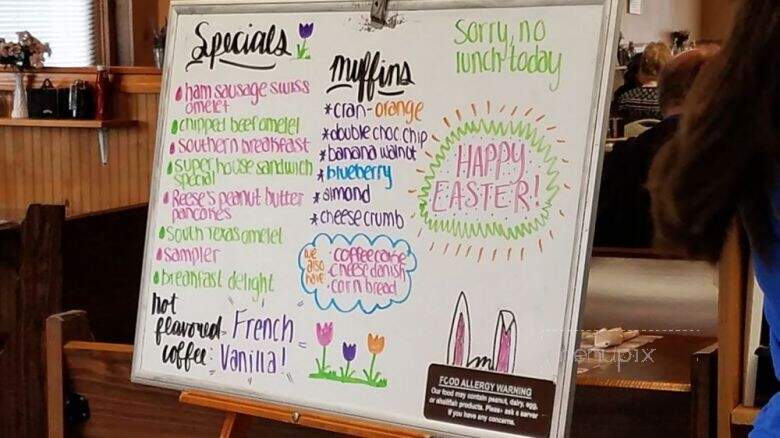 Specials
ham sausage swiss
omelet
chipped beef omelet
southern breakfast
super house sandwich
special
Reese's peanut butter
pancakes
South Texas omelet
Sampler
breakfast delight
hot
flavored
coffee:
French
Vanilla!
muffins
*cran-orange
*double choc chip
*banana walnut
*blueberry
*almond
*cheese crumb
we
also
have:
coffee cake
cheese danish
corn bread
Sorry, no
lunch today
HAPPY
EASTER!
FOOD ALLERGY WARNING
Our food may contain peanut, dairy, egg,
or shellfish products. Please ask a server
if you have any concerns.
menupix